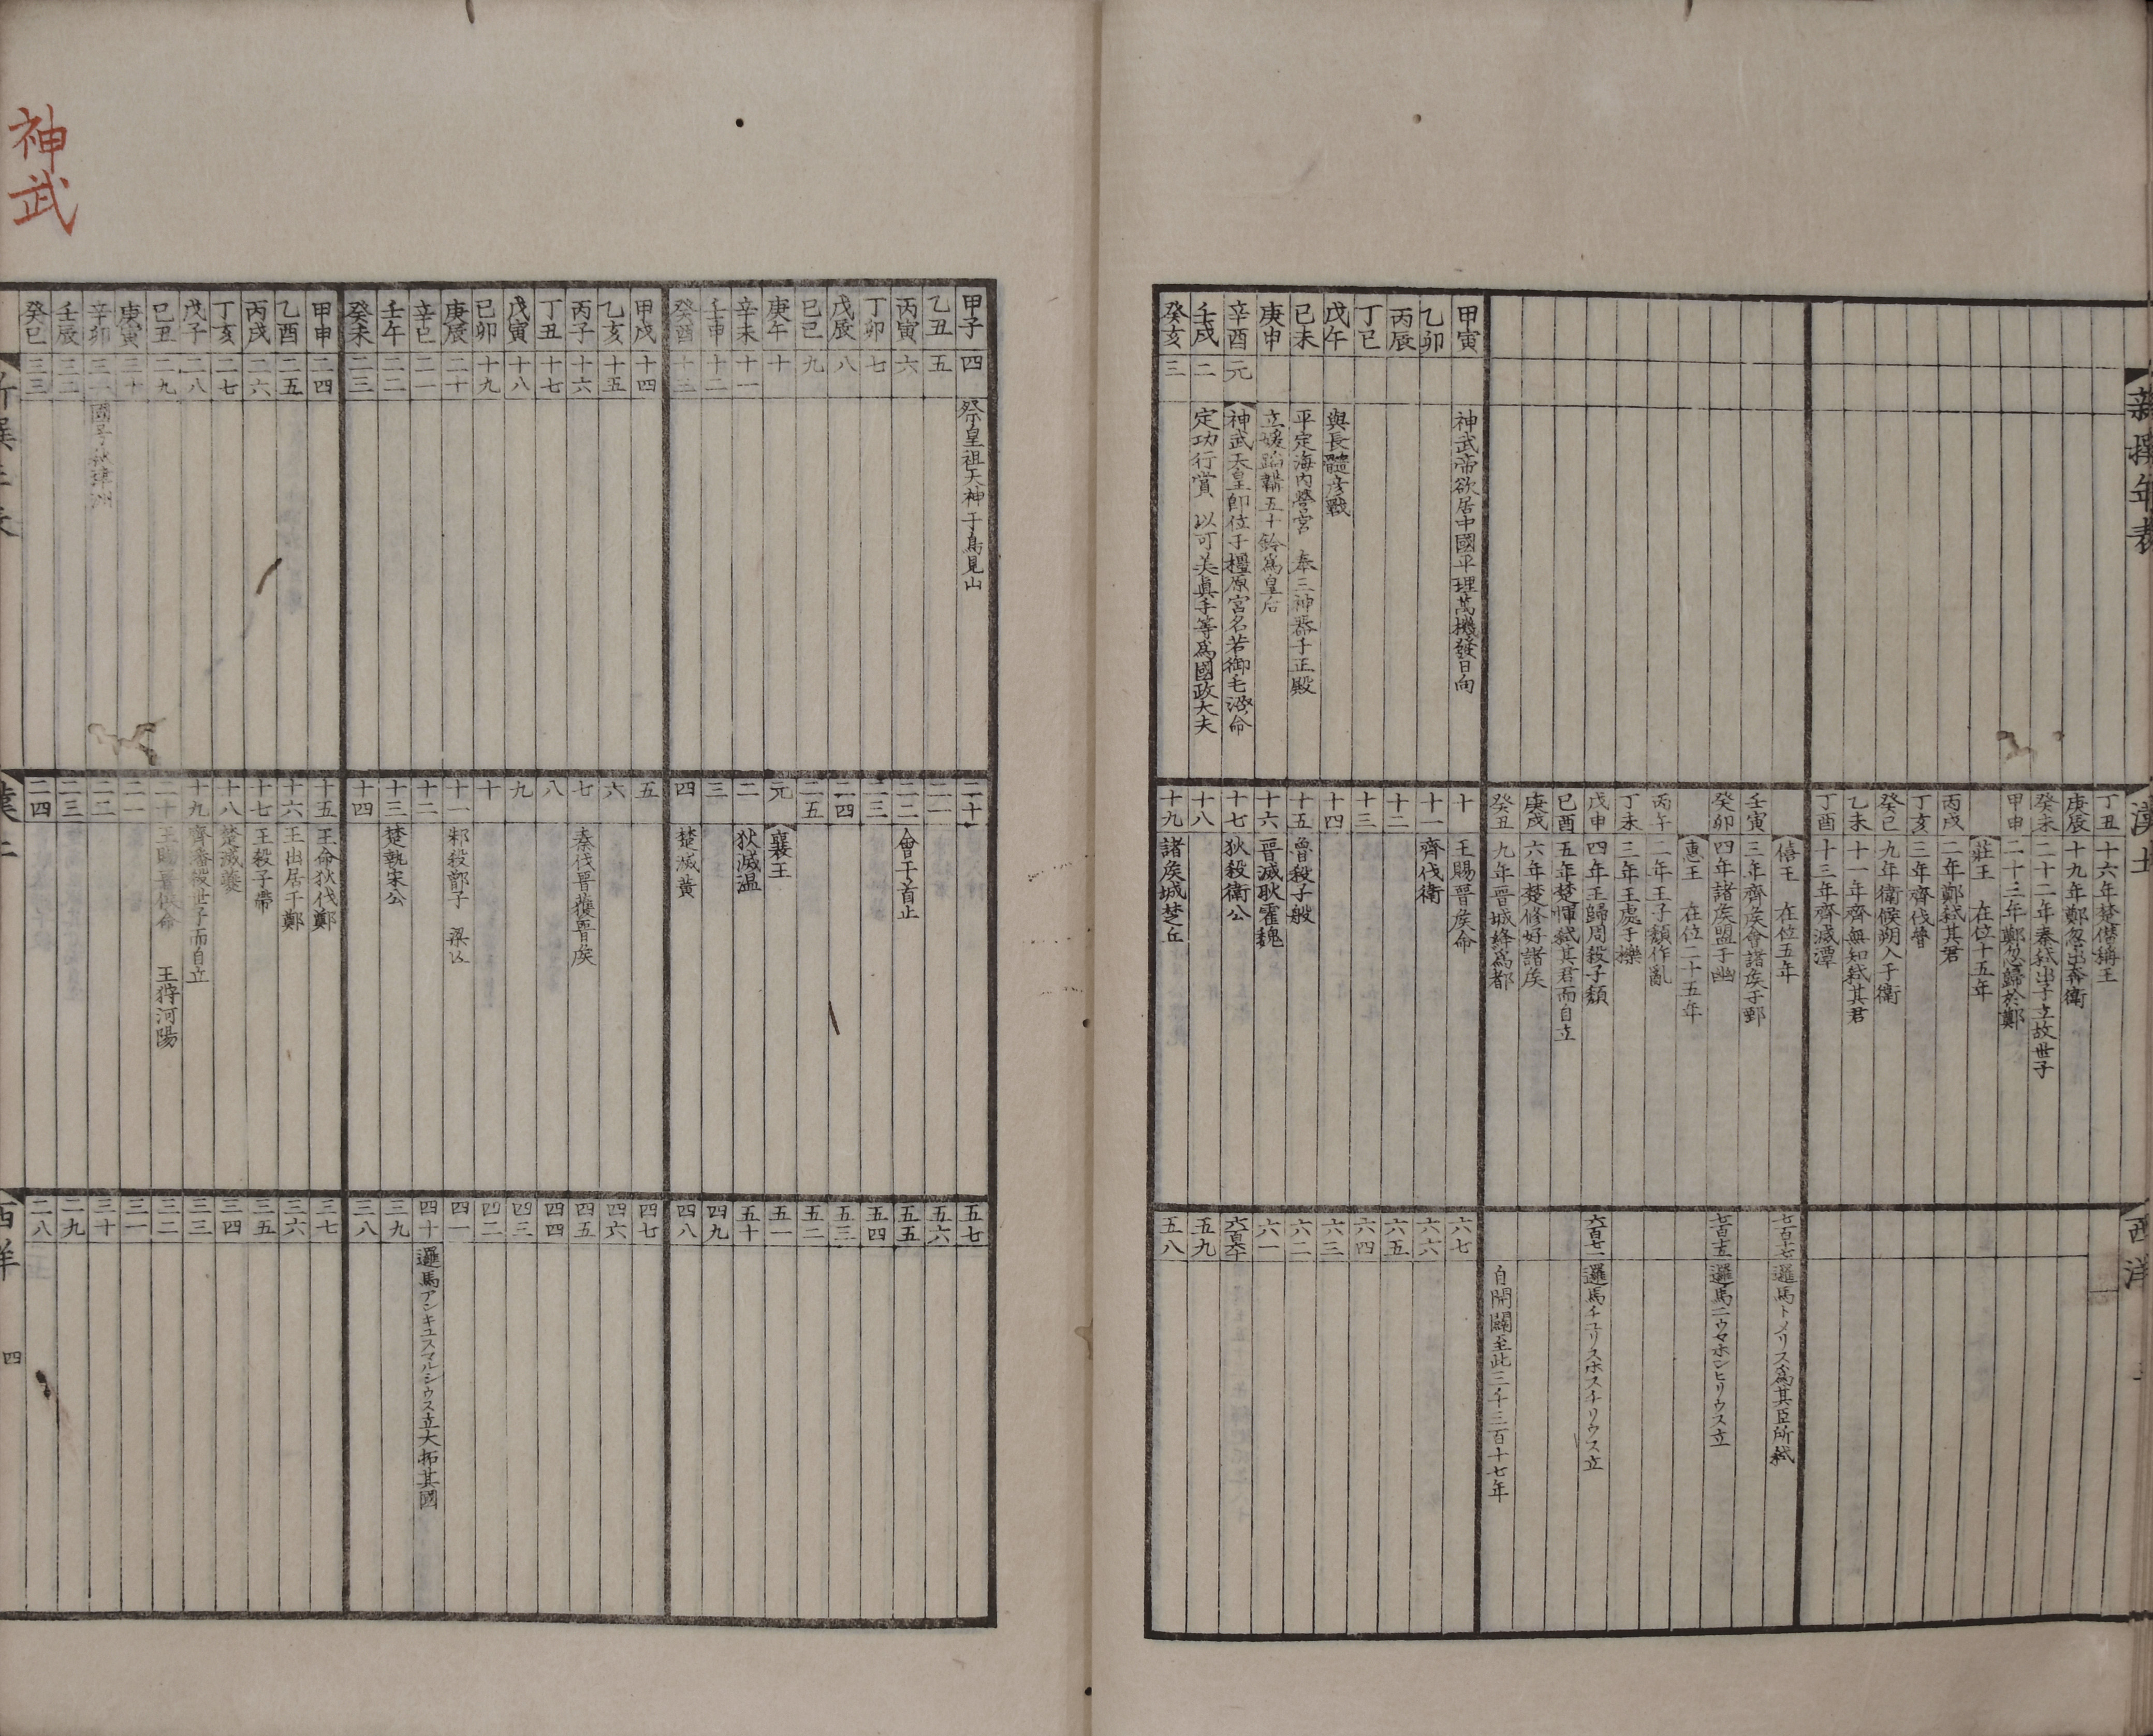 新撰年表
甲寅
神武帝欲居中國平理萬機發日向
乙卯
丙辰
丁巳
戊午
與長髓彦戰
己未
平定海內營宮 奉三神器于正殿
庚申
立媛蹈韛五十鈴爲皇后
辛酉
元
神武天皇卽位于橿原宮名若御毛沼命
壬戌
二
定功行賞 以可美眞手等爲國政大夫
癸亥
三
漢土
丁丑
十六年楚僭稱王
庚辰
十九年鄭忽出奔衛
癸未
二十二年秦弑出子立故世子
甲申
二十三年鄭忽歸於鄭
莊王 在位十五年
丙戌
二年鄭弑其君
丁亥
三年齊伐
癸巳
九年衛侯朔入于衛
乙未
十一年齊無知弑其君
丁酉
十三年齊滅潭
僖王 在位五年
壬寅
三年齊矦會諸矦于鄄
癸卯
四年諸矦盟于幽
惠王 在位二十五年
丙午
二年王子頽作亂
丁未
三年王處于櫟
戊申
四年王歸周殺子頽
己酉
五年楚惲弑其君而自立
庚戌
六年楚修好諸矦
癸丑
九年晉城絳爲都
十
王賜晉矦命
十一
齊伐衛
十二
十三
十四
十五
魯殺子般
十六
晉滅耿霍魏
十七
狄殺衛公
十八
十九
諸矦城楚丘
西洋
七百十七
邏馬トメリス爲其臣所弑
七百十五
邏馬ニウマホンヒリウス立
六百七一
邏馬チユリスホスチリウス立
自開闢至此三千三百十七年
六七
六六
六五
六四
六三
六二
六一
六百六十
五九
五八
甲子
四
祭皇祖天神于鳥見山
乙丑
五
丙寅
六
丁卯
七
戊辰
八
己巳
九
庚午
十
辛未
十一
壬申
十二
癸酉
十三
甲戌
十四
乙亥
十五
丙子
十六
丁丑
十七
戊寅
十八
己卯
十九
庚辰
二十
辛巳
二一
壬午
二二
癸未
二三
甲申
二四
乙酉
二五
丙戌
二六
丁亥
二七
戊子
二八
己丑
二九
庚寅
三十
辛卯
三一
國号秋津洲
壬辰
三二
癸巳
三三
二十
二一
二二
會于首止
二三
二四
二五
元
襄王
二
狄滅温
三
四
楚滅黄
五
六
七
秦伐晉獲晉矦
八
九
十
十一
邾殺鄫子 梁
十二
十三
楚執宋公
十四
十五
王命狄伐鄭
十六
王出居于鄭
十七
王殺子帶
十八
楚滅夔
十九
齊潘殺世子而自立
二十
王賜晉矦命 王狩河陽
二一
二二
二三
二四
五七
五六
五五
五四
五三
五二
五一
五十
四九
四八
四七
四六
四五
四四
四三
四二
四一
四十
邏馬アンキユスマルシウス立大拓其國
三九
三八
三七
三六
三五
三四
三三
三二
三一
三十
二九
二八
神武
四